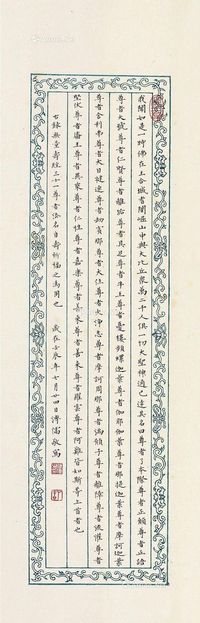 我聞如是一時佛在王舍城耆闍崛山中與大比丘眾萬二千人俱一切大聖神通已達其名曰尊者了本際尊者正願尊者正語
尊者大號尊者仁賢尊者離垢尊者具足尊者牛王尊者優樓頻螺迦葉尊者伽耶迦葉尊者那提迦葉尊者摩訶迦葉
尊者舍利弗尊者大目揵連尊者劫賓那尊者大住尊者大淨志尊者摩訶周那尊者滿願子尊者離障尊者流灌尊者
堅伏尊者面王尊者異乘尊者仁性尊者嘉樂尊者善來尊者羅雲尊者阿難皆如斯等上首者也
右錄無量壽經三十一尊者名日壽祈福之為用也 歲在壬辰年七月廿四日溥儒敬寫